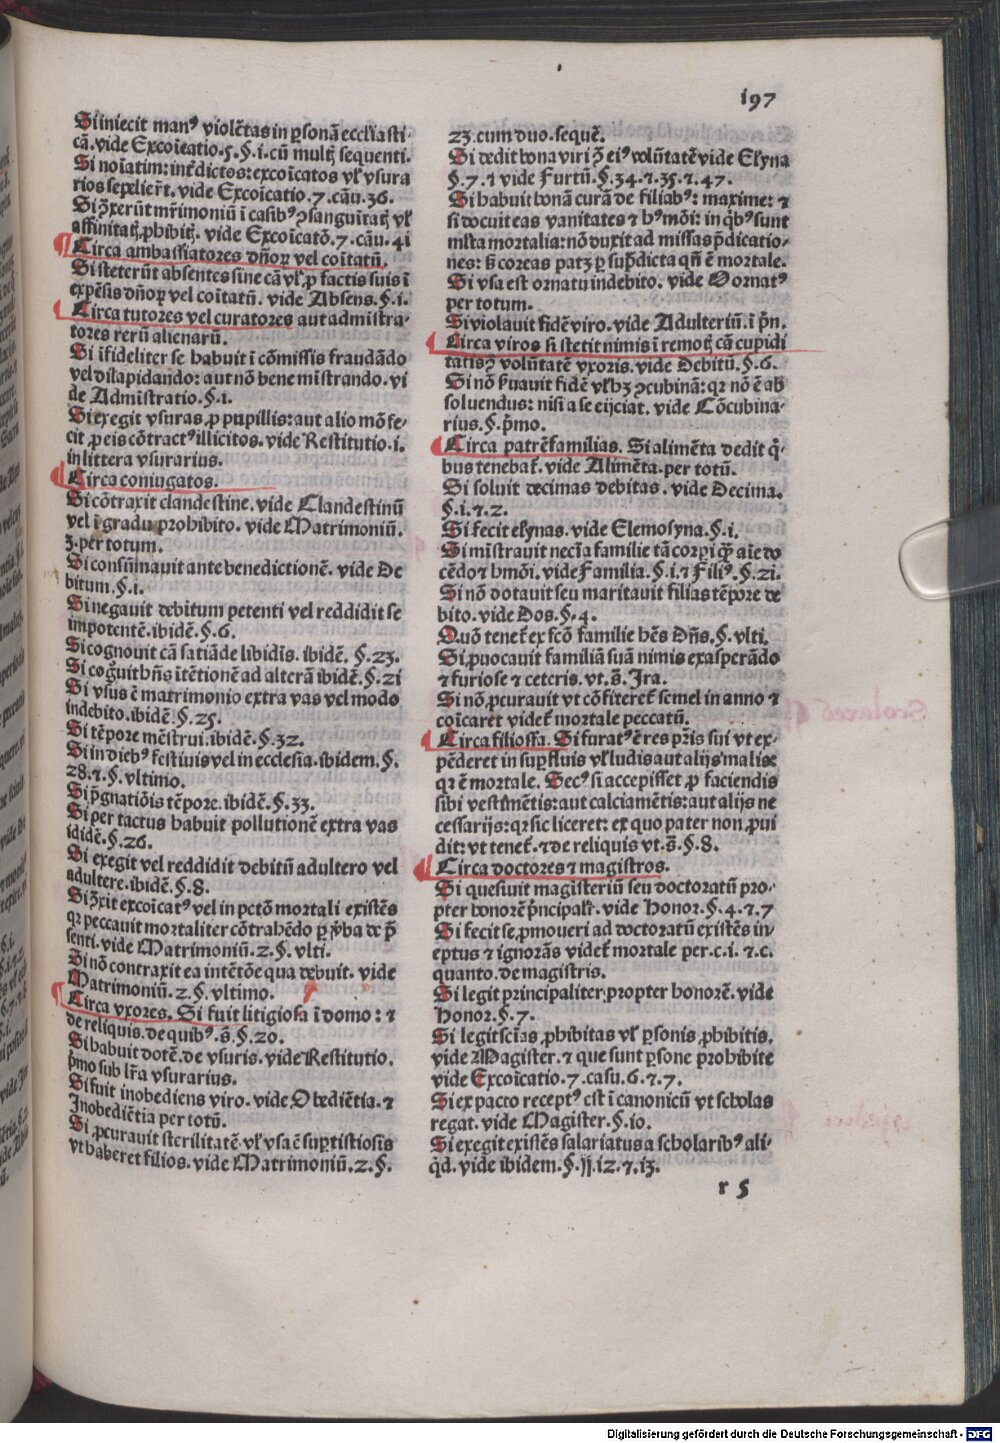 197
Si iniecit manꝰ violẽtas in ꝑsonã ecclẽasti
cã. vide Excoĩcatio. 5. §. i. cũ multꝭ sequenti.
Si noĩatim: intẽdictos: excoĩcatos vł vsura
rios sepelier̃t. vide Excoĩcatio. 7. cãu. 36.
Si ꝯ̃xerũt mr̃imoniũ ĩ casibꝰ ꝯsanguĩtatꝭ vł
affinitatꝭ ꝓhibitꝭ. vide Excoĩcatõ. 7. cãu. 4i
Circa ambassiatores dñoꝝ vel coĩtatũ.
Si steterũt absentes sine cã vł ꝓ factis suis ĩ
expẽsis dñoꝝ vel coĩtatũ. vide Absens. §. i.
Circa tutores vel curatores aut admĩstra-
tores rerũ alienarũ.
Si ĩfideliter se habuit ĩ cõmissis fraudãdo
vel dilapidando: aut nõ bene mĩstrando. vi
de Admĩstratio. §. i.
Si exegit vsuras ꝓ pupillis: aut alio mõ fe-
cit ꝓ eis cõtractꝰ illicitos. vide Restitutio. i.
in littera vsurarius.
Circa coniugatos.
Si cõtraxit clandestine. vide Clandestinũ
vel ĩ gradu prohibito. vide Matrimoniũ.
3. per totum.
Si consũmauit ante benedictionẽ. vide De
bitum. §. i.
Si negauit debitum petenti vel reddidit se
impotentẽ. ibidẽ. §. 6.
Si cognouit cã satiãde libidĩs. ibidẽ. §. 23.
Si cog̃uit hñs ĩtẽtionẽ ad alterã ibidẽ. §. 2i
Si vsus ẽ matrimonio extra vas vel modo
indebito. ibidẽ. §. 25.
Si tẽpore mẽstrui. ibidẽ. §. 32.
Si in diebꝰ festiuis vel in ecclesia. ibidem. §.
28. ⁊. §. vltimo.
Si p̃gnatiõis tẽpore. ibidẽ. §. 33.
Si per tactus habuit pollutionẽ extra vas
ididẽ. §. 26.
Si exegit vel reddidit debitũ adultero vel
adultere. ibidẽ. §. 8.
Si ꝯ̃xit excoĩcatꝰ vel in pctõ mortali existẽs
qꝛ peccauit mortaliter cõtrahẽdo ꝑ ꝟba de p̃
senti. vide Matrimoniũ. 2. §. vlti.
Si nõ contraxit ea intẽtõe qua debuit. vide
Matrimoniũ. 2. §. vltimo.
Circa vxores. Si fuit litigiosa ĩ domo: ⁊
de reliquis. de quibꝰ. s̃. §. 20.
Si habuit dotẽ. de vsuris. vide Restitutio.
p̃mo sub lr̃a vsurarius.
Si fuit inobediens viro. vide Obediẽtia. ⁊
Inobediẽtia per totũ.
Si ꝓcurauit sterilitatẽ vł vsa ẽ suꝑstitiosis
vt haberet filios. vide Matrimoniũ. 2. §.
23. cum duo. sequẽ.
Si dedit bona viri p̃ eiꝰ volũtatẽ vide Elyna
§. 7. ⁊ vide Furtũ. §. 34. ⁊. 35. ⁊. 47.
Si habuit bonã curã de filiabꝰ: maxime: ⁊
si docuit eas vanitates ⁊ hꝰmõi: in qͥbꝰ sunt
mĺta mortalia: nõ duxit ad missas p̃dicatio-
nes: s̃ coreas patꝫ ꝑ sup̃dicta qñ ẽ mortale.
Si vsa est ornatu indebito. vide Ornatꝰ
per totum.
Si violauit fidẽ viro. vide Adulteriũ. ĩ pͥn.
Circa viros si stetit nimis ĩ remotꝭ cã cupidi
tatis ꝯ̃ volũtatẽ vxoris. vide Debitũ. §. 6.
Si nõ ẜuauit fidẽ vł hꝫ ꝯcubinã: qꝛ nõ ẽ ab
soluendus: nisi a se eijciat. vide Cõcubina-
rius. §. pͥmo.
Circa patrẽfamilias. Si alimẽta dedit qͥ-
bus tenebat̃. vide Alimẽta. per totũ.
Si soluit decimas debitas. vide Decima.
§. i. ⁊. 2.
Si fecit elynas. vide Elemosyna. §. i.
Si mĩstrauit necĩa familie tã corꝑi qͣ̃ aĩe do
cẽdo ⁊ hmõi. vide Familia. §. i. ⁊ Filiꝰ. §. 2i.
Si nõ dotauit seu maritauit filias tẽpore de
bito. vide Dos. §. 4.
Quõ tenet̃ ex fcõ familie hẽs Dñs. §. vlti.
Si ꝓuocauit familiã suã nimis exasperãdo
⁊ furiose ⁊ ceteris. vt. s̃. Ira.
Si nõ ꝓcurauit vt cõfiteret̃ semel in anno ⁊
coĩcaret videt̃ mortale peccatũ.
Circa filiosfa. Si furatꝰ ẽ res pr̃is sui vt ex-
pẽderet in suꝑfluis vł ludis aut alijs malis:
qꝛ ẽ mortale. Secꝰ si accepisset ꝓ faciendis
sibi vestĩmẽtis: aut calciamẽtis: aut alijs ne
cessarijs: qꝛ sic liceret: ex quo pater non ꝓui
dit: vt tenet̃. ⁊ de reliquis vt. s̃. §. 8.
Circa doctores ⁊ magistros.
Si quesiuit magisteriũ seu doctoratũ pro-
pter honorẽ pͥncipalr̃. vide Honor. §. 4. ⁊. 7
Si fecit se ꝓmoueri ad doctoratũ existẽs in-
eptus ⁊ ignorãs videt̃ mortale per. c. i. ⁊. c.
quanto. de magistris.
Si legit principaliter propter honorẽ. vide
Honor. §. 7.
Si legit scĩas ꝓhibitas vł ꝑsonis ꝓhibitis.
vide Magister. ⁊ que sunt ꝑsone prohibite
vide Excoĩcatio. 7. casu. 6. ⁊. 7.
Si ex pacto receptꝰ est ĩ canonicũ vt scholas
regat. vide Magister. §. io.
Si exegit existẽs salariatus a scholaribꝰ ali-
qͥd. vide ibidem. §. ij. i2. ⁊. i3.
r 5
Digitalisierung gefördert durch die Deutsche Forschungsgemeinschaft - DFG